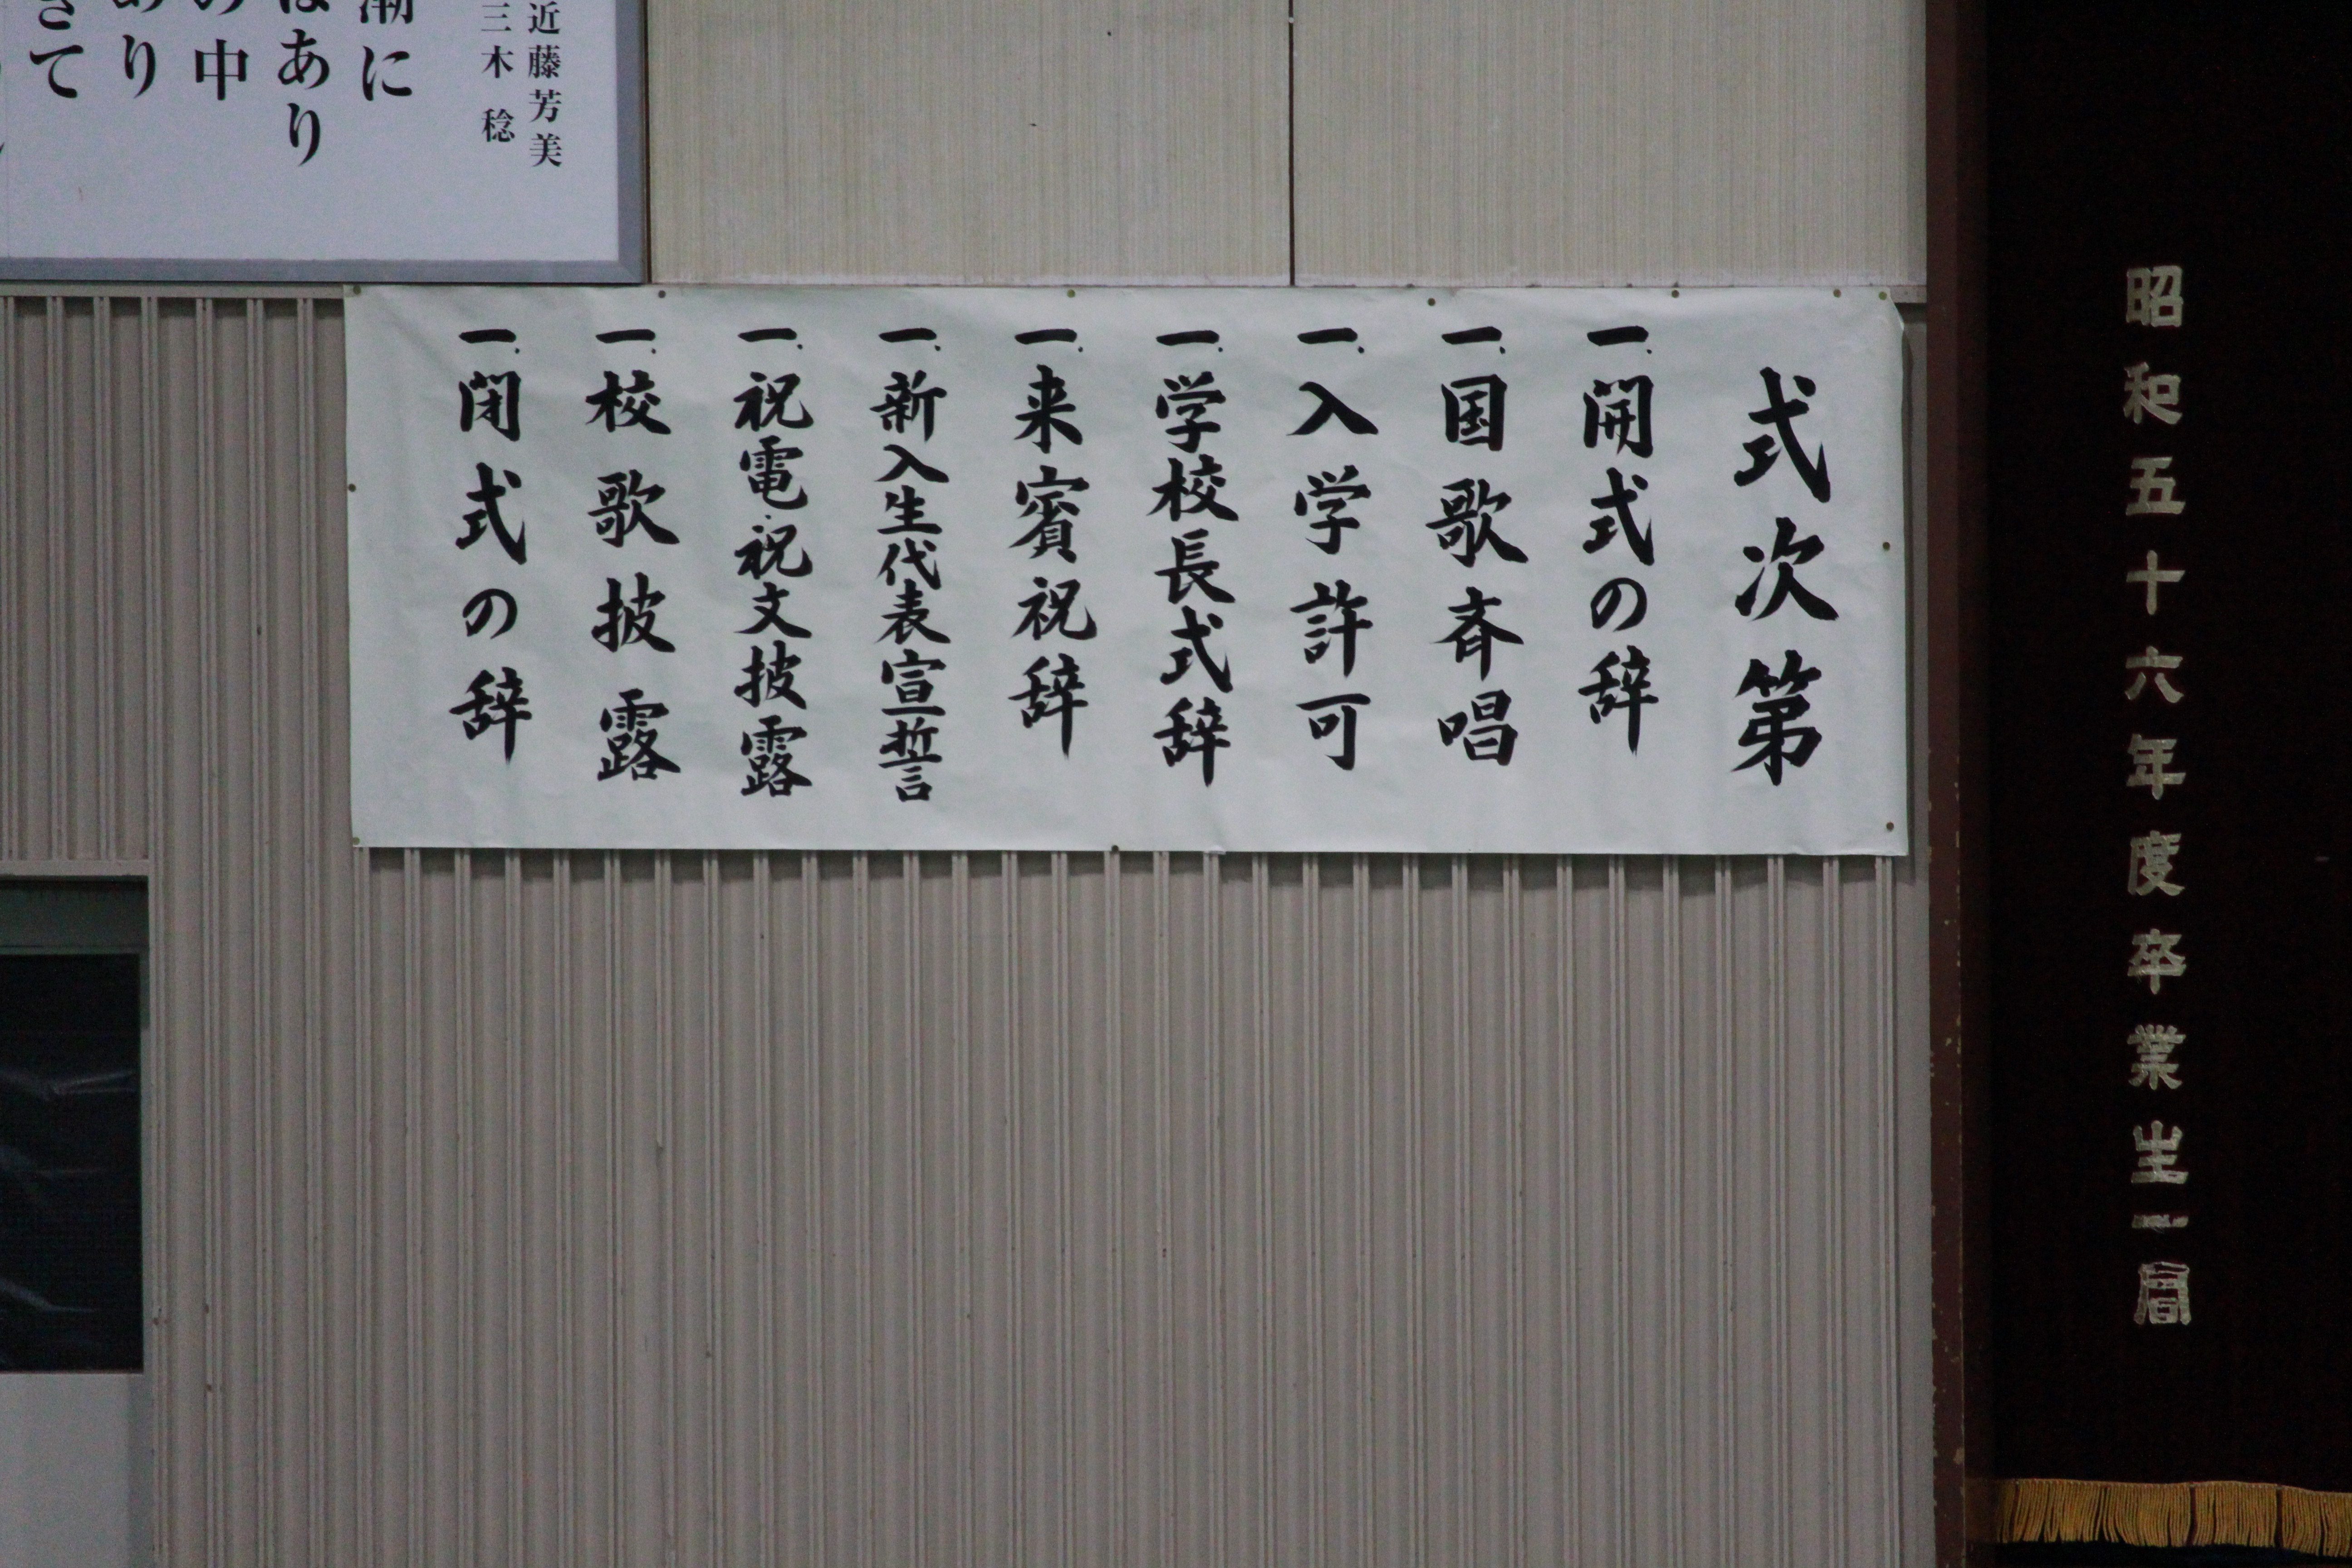 昭和五十六年度卒業生一同
式次第
一、開式の辞
一、国歌斉唱
一、入学許可
一、学校長式辞
一、来賓祝辞
一、新入生代表宣誓
一、祝電・祝文披露
一、校歌披露
一、閉式の辞
近藤芳美
三木 稔
潮に
はあり
の中
あり
きて